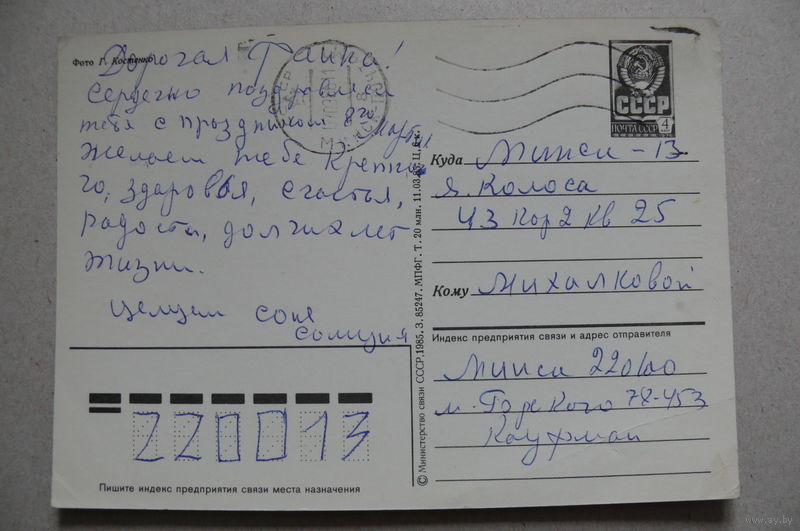 Фото Г. Костенко
Дорогая Танка!
Сердечно поздравляем
тебя с праздником 8го
марта
Желаем тебе крепка
го, здаровья, счастья,
радости, долгих лет
жизни.
Целуем соня
СССР
ПОЧТА СССР
4
Куда Минск-13
Я. Колоса
43 кор 2 кв 25
Кому Михалковой
Индекс предприятия связи и адрес отправителя
Минск 220100
М. Горкого 78-453
Кауфман
220013
Пишите индекс предприятия связи места назначения
© Министерство связи СССР, 1985. З. 85247. МПФГ. Т. 20 млн. 11.03.85. Ц. 5 к.
www.ay.by